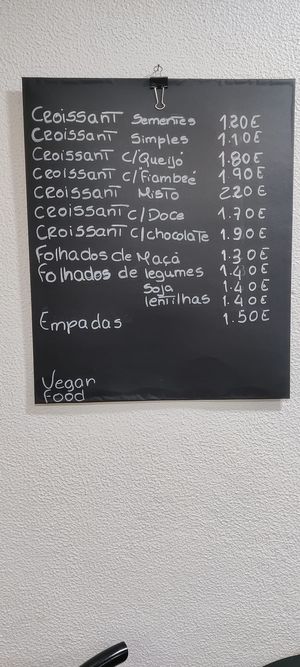 Croissant Sementes 1.20€
Croissant Simples 1.10€
Croissant c/Queijo 1.80€
Croissant c/Fiambre 1.90€
Croissant Misto 2.20€
Croissant c/Doce 1.70€
Croissant c/chocolate 1.90€
Folhados de Maçã 1.30€
Folhados de legumes 1.40€
Soja 1.40€
lentilhas 1.40€
Empadas 1.50€
Vegan
Food